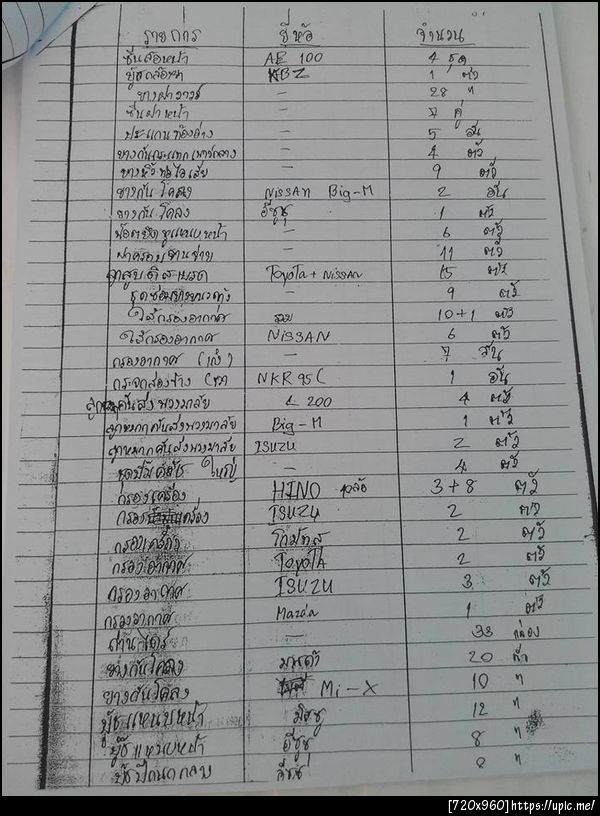 รายการ ยี่ห้อ จำนวน
ชิ้นล้อหน้า AE 100 4 ชุด
KBZ 1 ตัว
ยางฝาวาวล์ — 28 "
— 7 คู่
ประแกนท้องอ่าง — 5 อัน
ยางกันกระแทกเพลากลาง — 4 ตัว
ยางหิ้วท่อไอเสีย — 9 ตัว
ยางกันโคลง NISSAN Big-M 2 อัน
ยางกันโคลง อีซูซุ 1 ตัว
น๊อตยึดชูแหนบหน้า — 6 ตัว
ฝาครอบจานจ่าย — 11 ตัว
ลูกสูบดิสเบรค Toyota + NISSAN 15 ตัว
— 9 ตัว
ไส้กรองอากาศ รวม 10+1 ตัว
ไส้กรองอากาศ NISSAN 6 ตัว
กรองอากาศ — 7 อัน
กระจกส่องข้าง NKR 95 1 อัน
ลูกหมากคันส่งพวงมาลัย L 200 4 ตัว
ลูกหมากคันส่งพวงมาลัย Big-M 1 ตัว
ลูกหมากคันส่งพวงมาลัย ISUZU 2 ตัว
ใหญ่ — 4 ตัว
กรองเครื่อง HINO 3+8 ตัว
กรองเครื่อง ISUZU 2 ตัว
2 ตัว
กรองอากาศ Toyota 2 ตัว
กรองอากาศ ISUZU 3 ตัว
กรองอากาศ Mazda 1 ตัว
— 33 กล่อง
ยางกันโคลง มาสด้า 20
ยางกันโคลง Mi-X 10 "
บู๊ชแหนบหน้า มิตซู 12 "
บู๊ชแหนบหน้า อีซูซุ 8 "
บู๊ชปีกนกกลาง อีซูซุ 8 "
[720x960] https://upic.me/